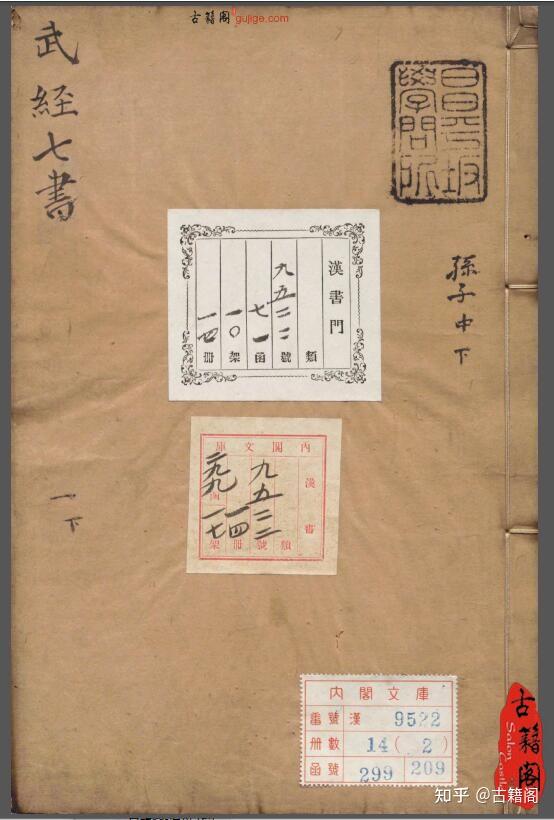 古籍阁 gujige.com
武經七書
昌平坂
學問所
孫子中下
漢書門
類
九五二二號
七一函
一〇架
一四冊
內閣文庫
漢書類
九五二二號
一四冊
二九九函
一七架
一下
内閣文庫
番號 漢 9522
册數 14(2)
函號 299 209
古籍阁
知乎 @古籍阁